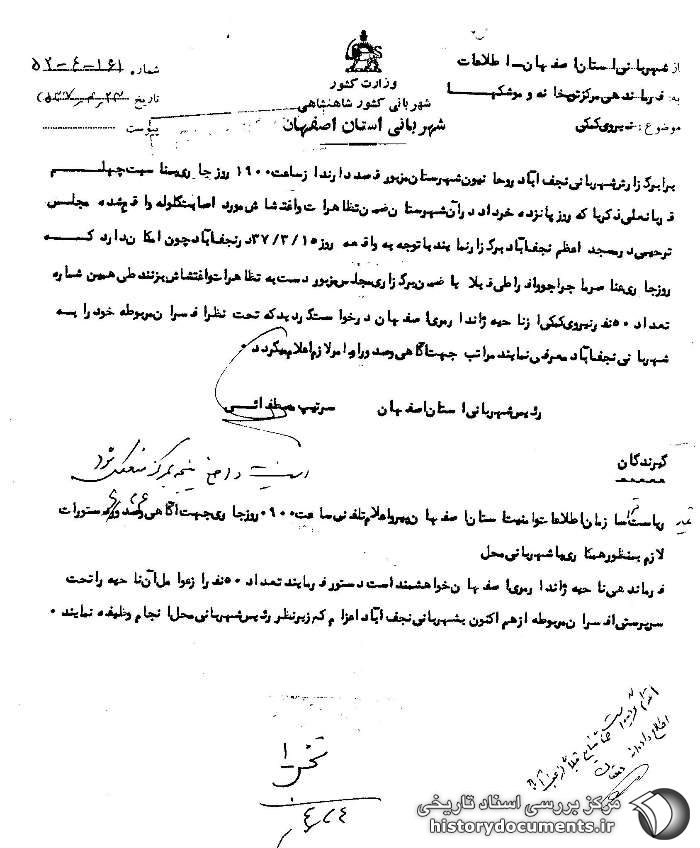 از : شهربانی استان اصفهان - اطلاعات
به : فرماندهی مرکز توپخانه و موشکها
موضوع : نیروی کمکی
وزارت کشور
شهربانی کشور شاهنشاهی
شهربانی استان اصفهان
شماره ۵۲-۴-۱۶۱
تاریخ
پیوست
برابر گزارش شهربانی نجف آباد روحانیون شهرستان مزبور قصد دارند از ساعت ۱۹۰۰ روز جاری بمناسبت چهلم
قربانعلی ذکریا که روز پانزده خرداد در آن شهرستان ضمن تظاهرات و اغتشاش مورد اصابت گلوله واقع شده مجلس
ترحیمی در مسجد اعظم نجف آباد برگزار نمایند با توجه به واقعه روز ۳۷/۳/۱۵ در نجف آباد چون امکان دارد که
روز جاری عناصر ماجراجو و افراطی قبلا یا ضمن برگزاری مجلس مزبور دست به تظاهرات و اغتشاش بزنند طی همین شماره
تعداد ۵۰ نفر نیروی کمکی از ناحیه ژاندارمری اصفهان درخواست گردید که تحت نظر افسران مربوطه خود را به
شهربانی نجف آباد معرفی نمایند مراتب جهت آگاهی و صدور اوامر لازم اعلام میگردد .
رئیس شهربانی استان اصفهان سرتیپ مصطفائی
گیرندگان
ریاست سازمان اطلاعات و امنیت استان اصفهان پیرو اعلام تلفنی ساعت ۰۹۰۰ روز جاری جهت آگاهی و صدور دستورات
لازم بمنظور همکاری با شهربانی محل
فرماندهی ناحیه ژاندارمری اصفهان خواهشمند است دستور فرمایند تعداد ۵۰ نفر از عوامل آن ناحیه را تحت
سرپرستی افسران مربوطه از هم اکنون بشهربانی نجف آباد اعزام که زیر نظر رئیس شهربانی محل انجام وظیفه نمایند .
مرکز بررسی اسناد تاریخی
historydocuments.ir